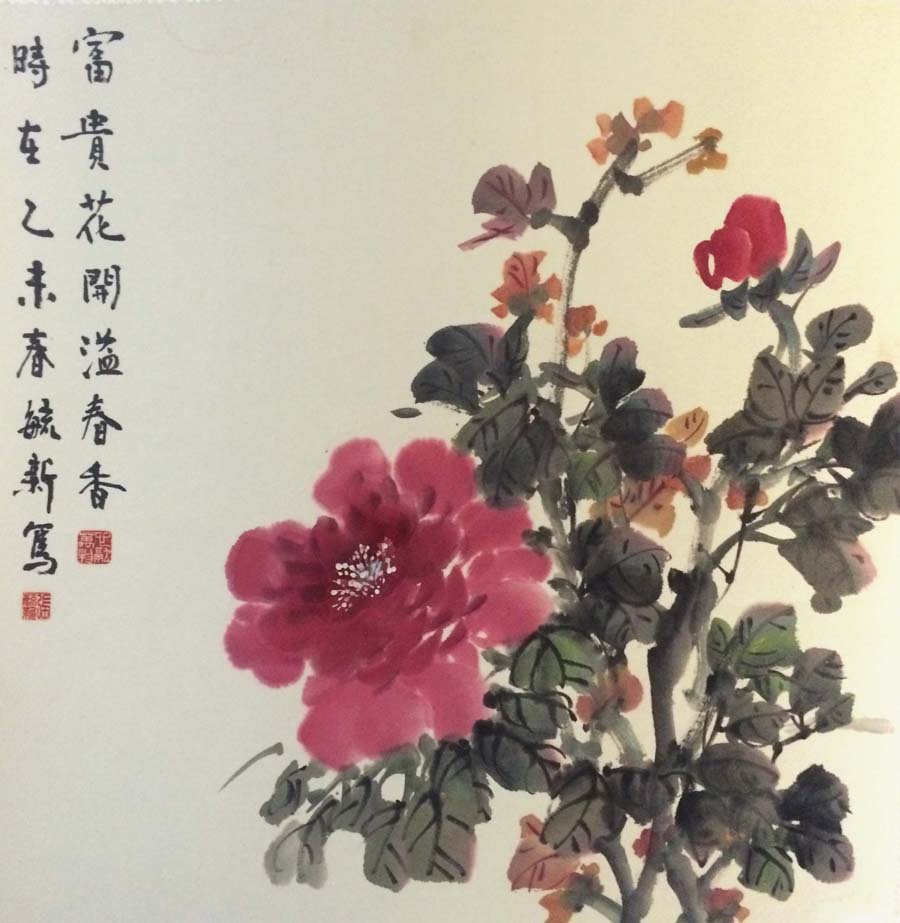 富貴花開溢春香
時在乙未春毓新寫